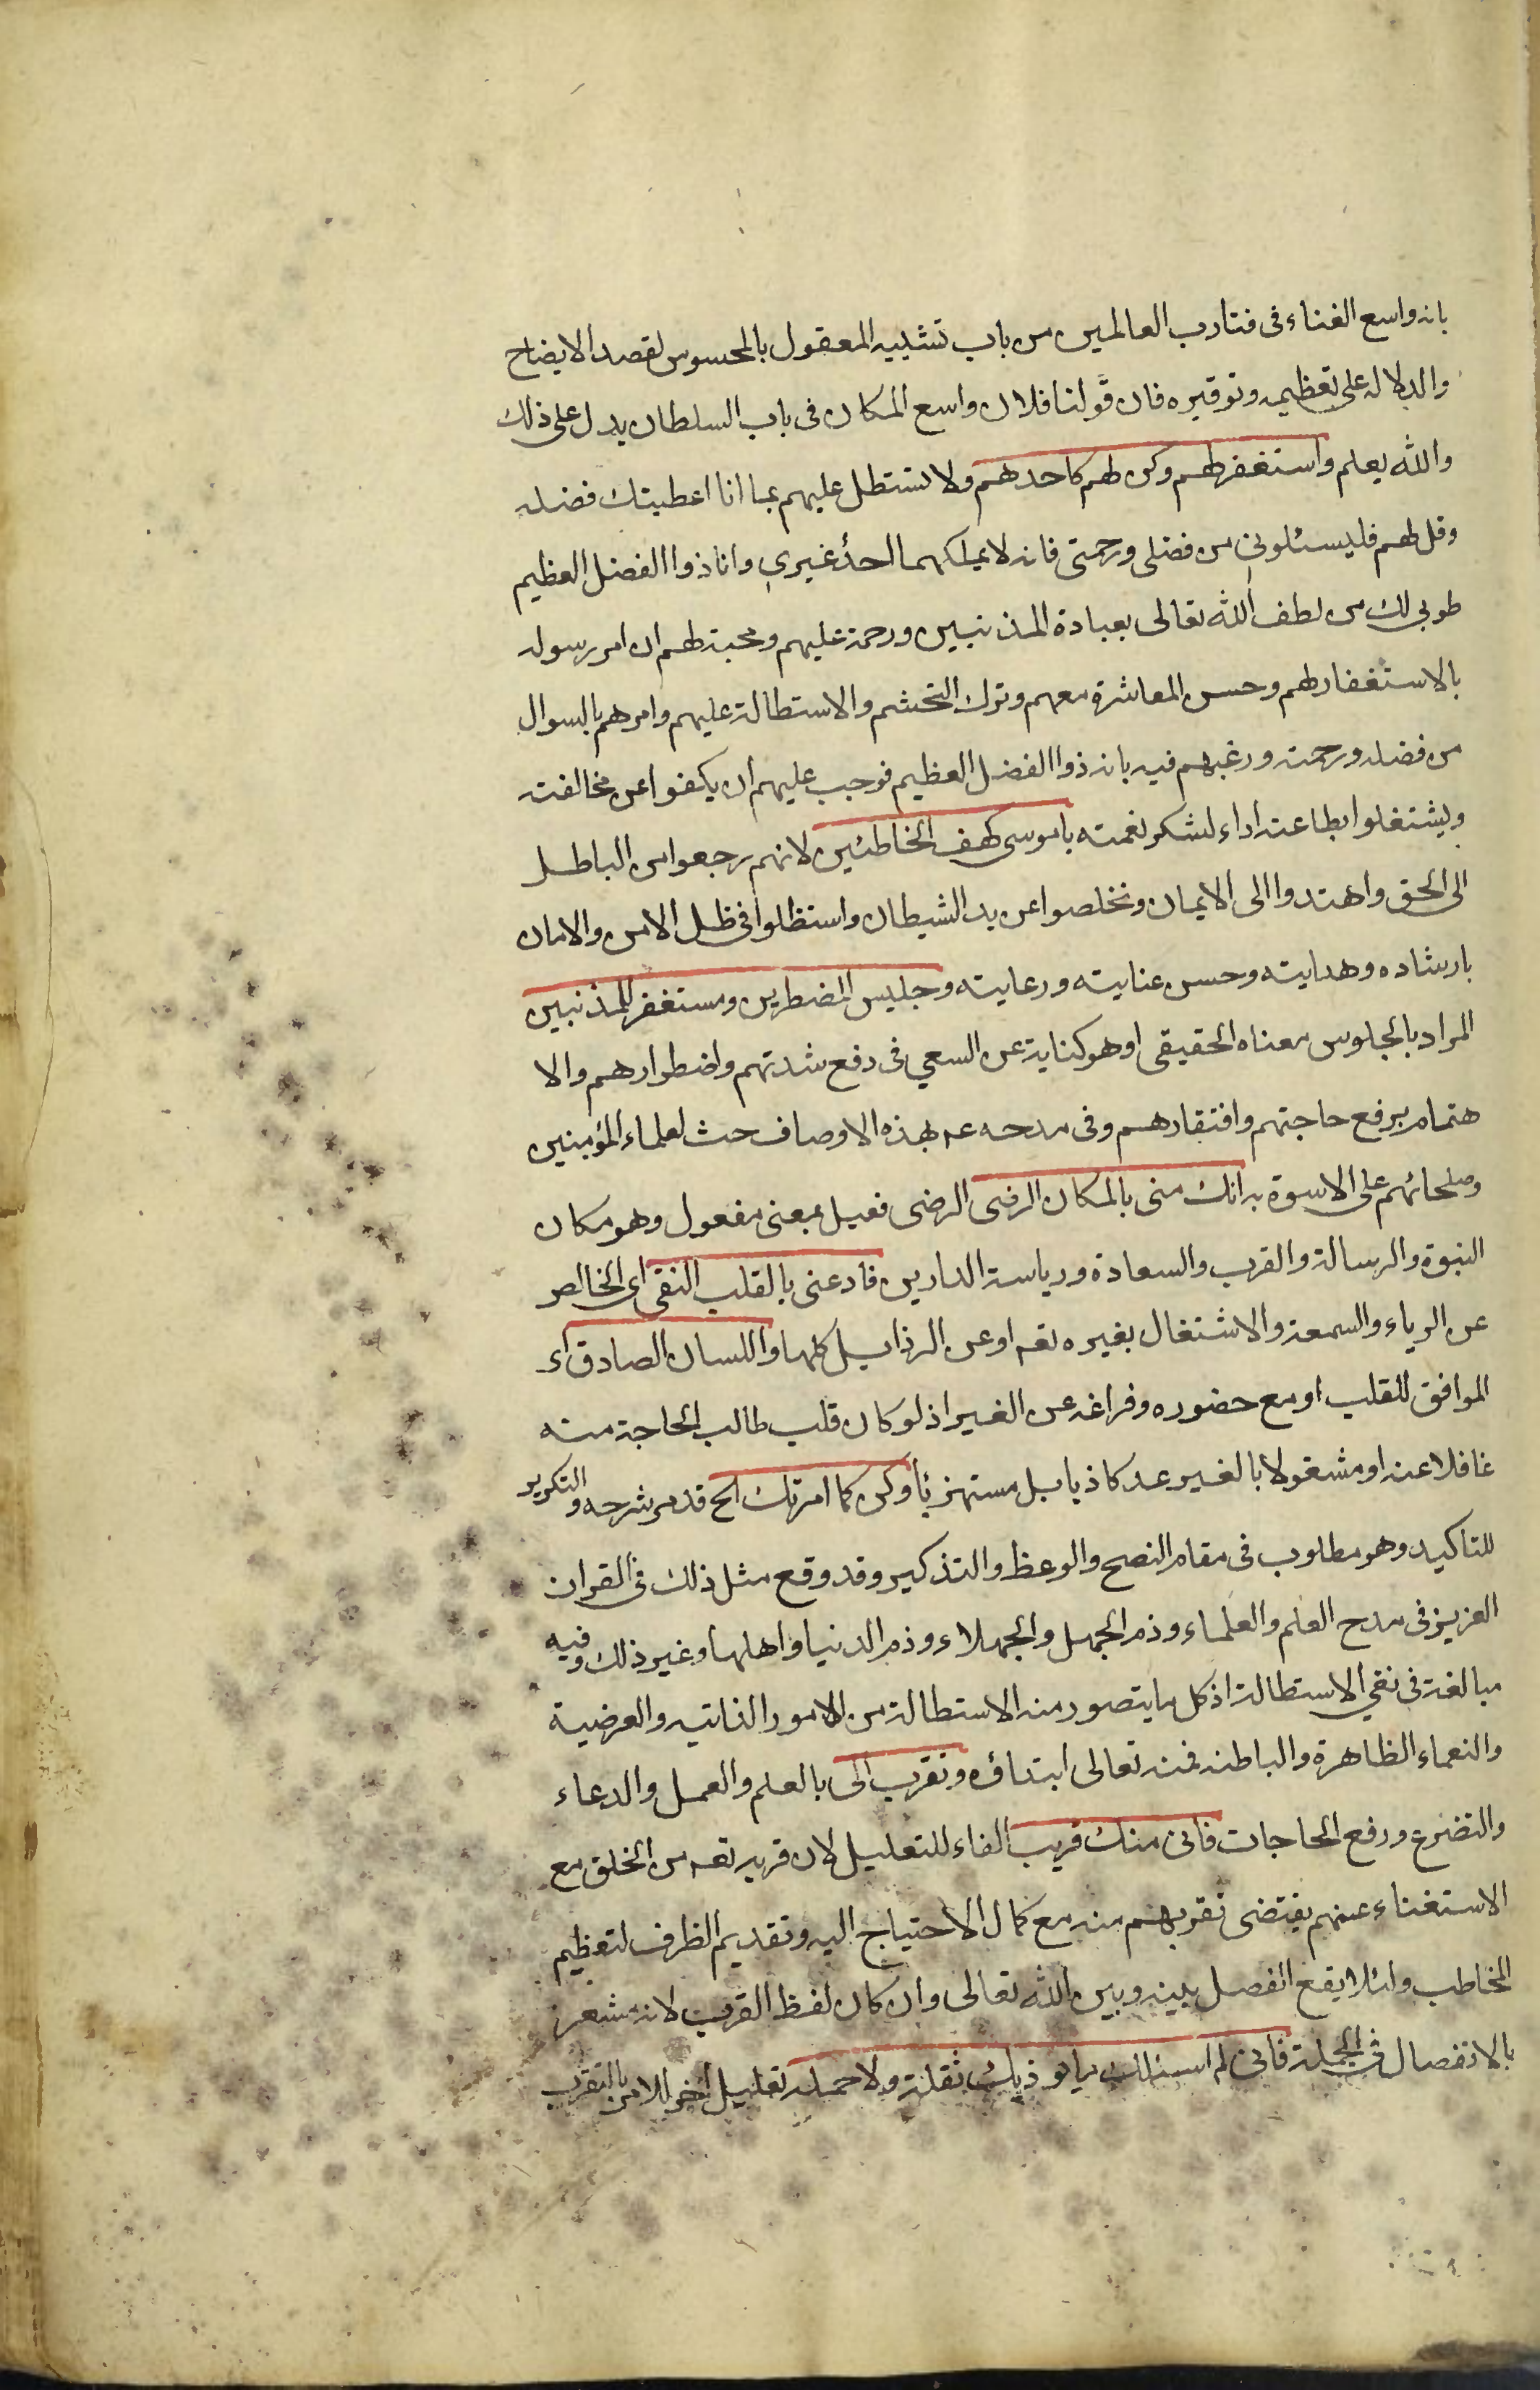 بانه واسع الفناء فى فناء رب العالمين من باب تشبيه المعقول بالمحسوس لقصد الايضاح
والدلالة على تعظيمه وتوقيره فان قولنا فلان واسع المكان فى باب السلطان يدل على ذلك
والله يعلم واستغفر لهم وكن لهم كاحدهم ولا تستطل عليهم بما انا اعطيتك فضله
وقل لهم فليسئلونى من فضلى ورحمتى فانه لا يملكهما احد غيرى وانا ذوا الفضل العظيم
طوبى لك من لطف الله تعالى بعبادة المذنبين ورحمته عليهم ومحبته لهم ان امر رسوله
بالاستغفار لهم وحسن المعاشرة معهم وترك التحشم والاستطالة عليهم وامرهم بالسوال
من فضله ورحمته ورغبهم فيه بانه ذوا الفضل العظيم فوجب عليهم ان يكفوا عن مخالفته
ويشتغلوا بطاعته اداء لشكر نعمته ياموسى كهف الخاطئين لانهم رجعوا من الباطل
الى الحق واهتدوا الى الايمان وتخلصوا عن يد الشيطان واستظلوا فى ظل الامن والامان
بارشاده وهدايته وحسن عنايته ورعايته وجليس المضطرين ومستغفر للمذنبين
المراد بالجلوس معناه الحقيقى او هو كناية عن السعي فى دفع شدتهم واضطرارهم والا
هتمام برفع حاجتهم وافتقارهم وفى مدحه عم بهذه الاوصاف حث لعلماء المؤمنين
وصلحائهم على الاسوة به انك منى بالمكان الرضى الرضى فعيل بمعنى مفعول وهو مكان
النبوة والرسالة والقرب والسعادة ورياسة الدارين فادعنى بالقلب النقى اى الخالص
عن الرياء والسمعة والاشتغال بغيره تعه او عن الرذايل كلها واللسان الصادق اى
الموافق للقلب او مع حضوره وفراغه عن الغير اذ لو كان قلب طالب الحاجة منه
غافلا عنه او مشغولا بالغير عد كاذبا بل مستهزئا وكن كما امرتك الخ قد مر شرحه والتكرير
للتاكيد وهو مطلوب فى مقام النصح والوعظ والتذكير وقد وقع مثل ذلك فى القران
العزيز فى مدح العلم والعلماء وذم الجهل والجهلاء وذم الدنيا واهلها وغير ذلك وفيه
مبالغة فى نفي الاستطالة اذ كل ما يتصور منه الاستطالة من الامور الذاتيه والعرضية
والنعماء الظاهرة والباطنه فمنه تعالى ابتداؤه وتقرب الى بالعلم والعمل والدعاء
والتضرع ورفع الحاجات فانى منك قريب الفاء للتعليل لان قربه تعه من الخلق مع
الاستغناء عنهم يقتضى تقربهم منه مع كمال الاحتياج اليه وتقديم الظرف لتعظيم
المخاطب ولئلا يقع الفصل بينه وبين الله تعالى وان كان لفظ القريب لانه مشعر
بالانفصال فى الجملة فانى لم اسئلك ما يوذيك ثقلة ولا حمله تعليل اخر للامر بالتقرب